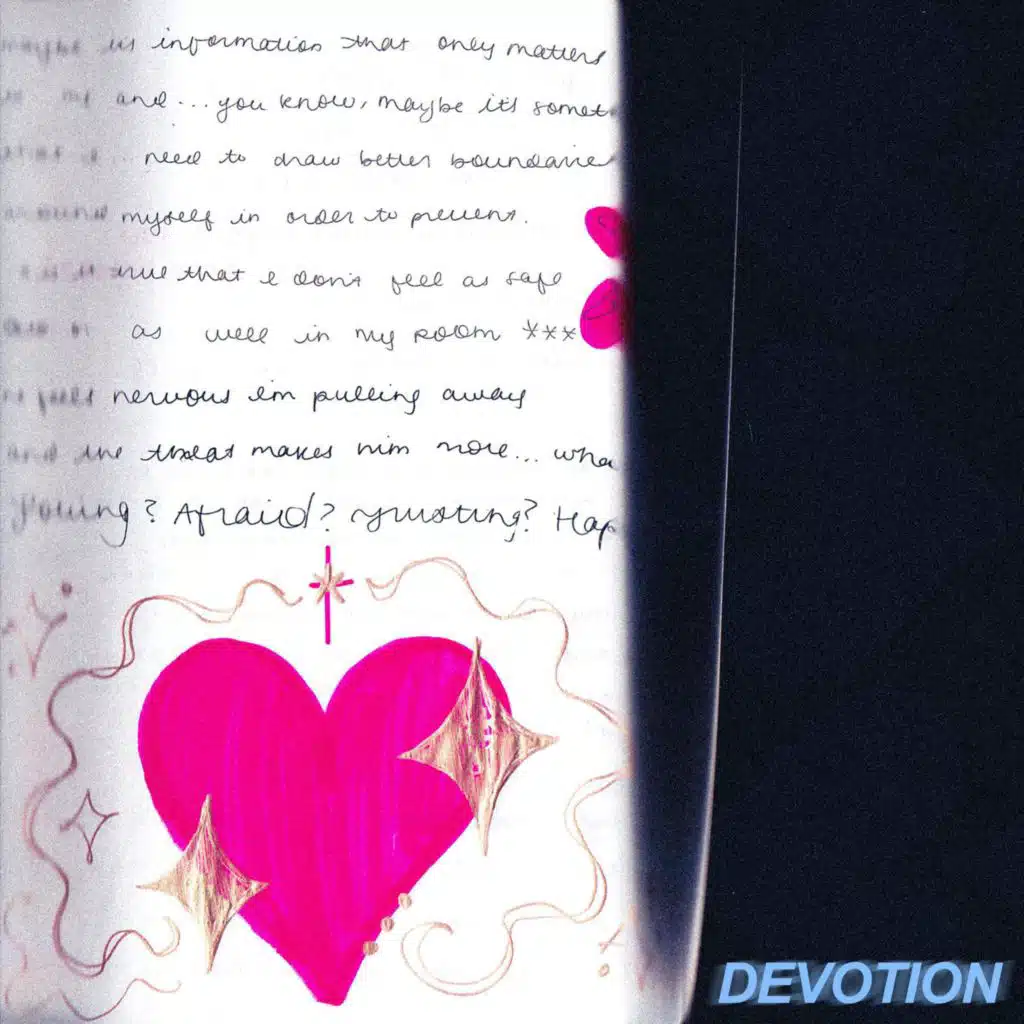 information that only matters
and... you know, maybe it's somet
need to draw better boundaries
myself in order to prevent.
true that I don't feel as safe
as well in my room ***
nervous I'm pulling away
and the threat makes him more... wha
? Afraid? Trusting? Hap
DEVOTION